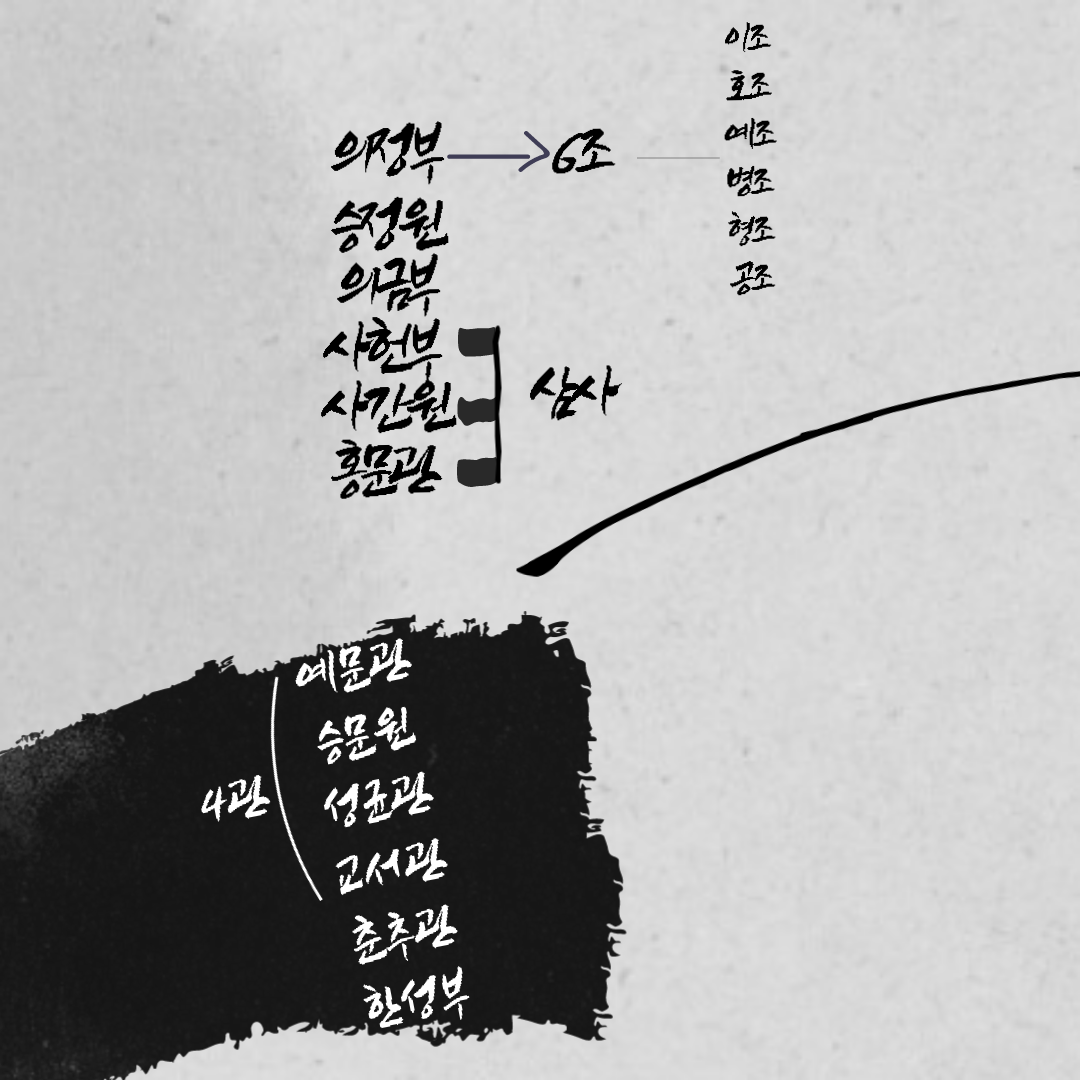 이조
호조
예조
병조
형조
공조
의정부 6조
승정원
의금부
사헌부
사간원
홍문관
삼사
예문관
승문원
성균관
교서관
4관
춘추관
한성부